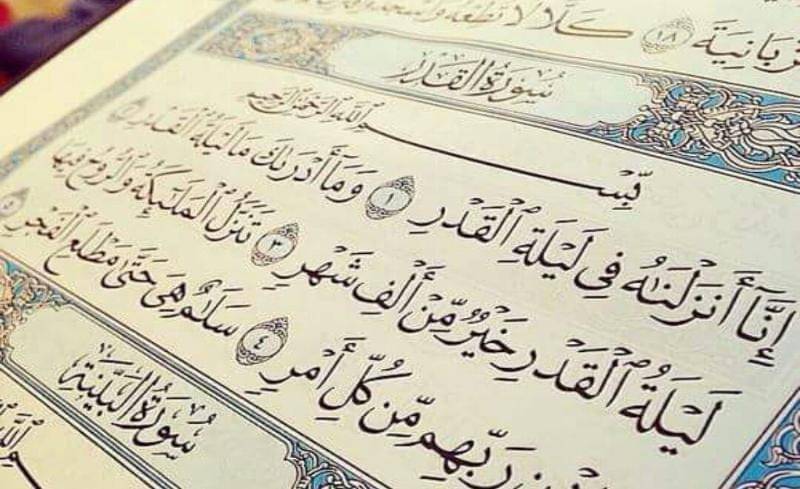 ٱلزَّبَانِيَةَ ١٨ كَلَّا لَا تُطِعْهُ وَٱسْجُدْ
سُورَةُ القَدْرِ
بِسْمِ ٱللَّهِ ٱلرَّحْمَٰنِ ٱلرَّحِيمِ
إِنَّآ أَنزَلْنَٰهُ فِى لَيْلَةِ ٱلْقَدْرِ ١ وَمَآ أَدْرَىٰكَ مَا لَيْلَةُ ٱلْقَدْرِ ٢
لَيْلَةُ ٱلْقَدْرِ خَيْرٌ مِّنْ أَلْفِ شَهْرٍ ٣ تَنَزَّلُ ٱلْمَلَٰٓئِكَةُ وَٱلرُّوحُ فِيهَا
رَبِّهِم مِّن كُلِّ أَمْرٍ ٤ سَلَٰمٌ هِىَ حَتَّىٰ مَطْلَعِ ٱلْفَجْرِ ٥
سُورَةُ البَيِّنَةِ
ٱللَّهِ